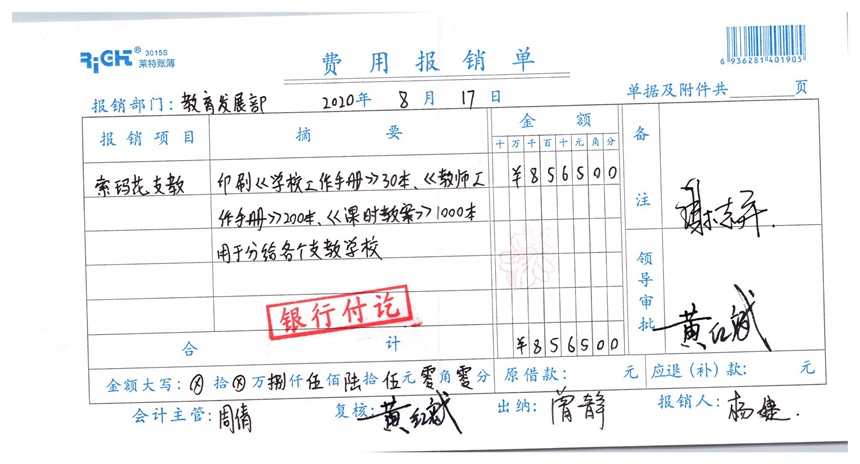 RiGHt® 3015S
莱特账簿
费用报销单
6 936281 401905
报销部门：教育发展部 2020年 8月 17日 单据及附件共 页
报销项目 摘要 金额 备注
十万千百十元角分
索玛花支教 印刷《学校工作手册》30本、《教师工 ¥856500
作手册》200本、《课时教案》1000本
用于分给各个支教学校
银行付讫
领导审批 黄红斌
合计 ¥856500
金额大写：⊗拾⊗万捌仟伍佰陆拾伍元零角零分 原借款： 元 应退（补）款： 元
会计主管：周倩 复核：黄红斌 出纳：曾静 报销人：杨婕